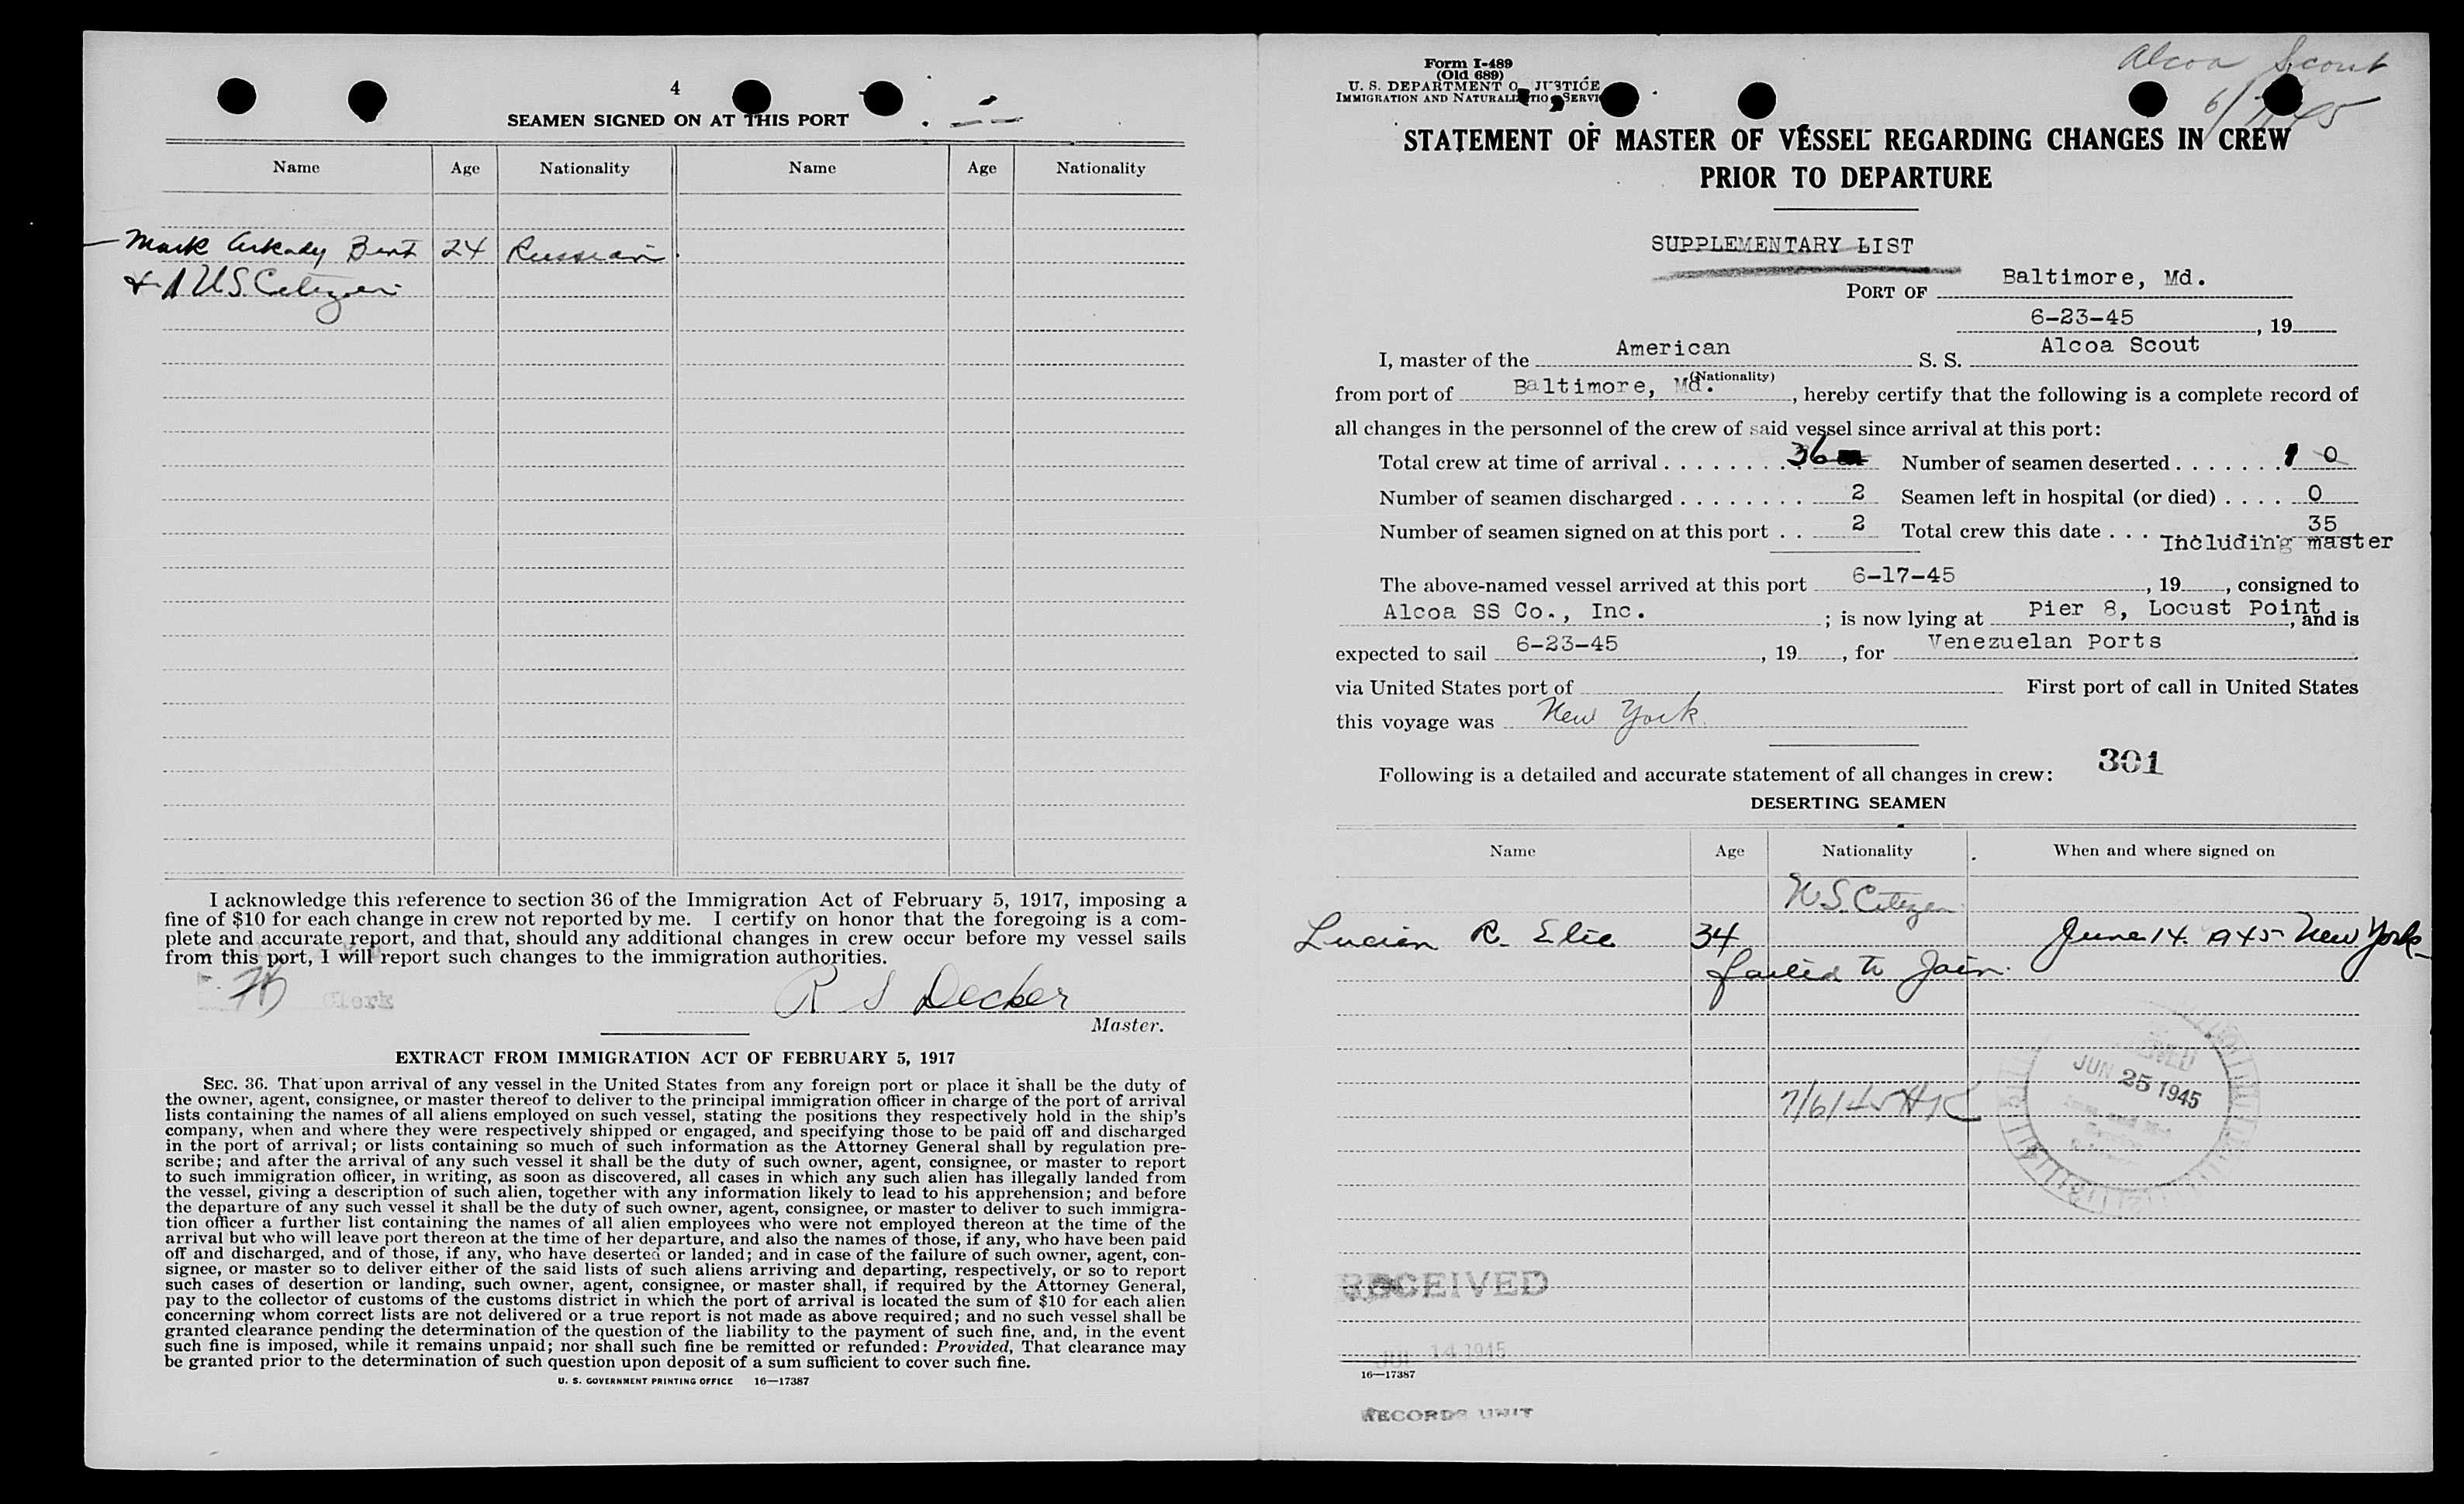 4
SEAMEN SIGNED ON AT THIS PORT
Name Age Nationality Name Age Nationality
Mark Arkady Bent 24 Russian
+ 1 U.S. Citizen
I acknowledge this reference to section 36 of the Immigration Act of February 5, 1917, imposing a
fine of $10 for each change in crew not reported by me. I certify on honor that the foregoing is a com-
plete and accurate report, and that, should any additional changes in crew occur before my vessel sails
from this port, I will report such changes to the immigration authorities.
Clerk
R S Decker
Master.
EXTRACT FROM IMMIGRATION ACT OF FEBRUARY 5, 1917
SEC. 36. That upon arrival of any vessel in the United States from any foreign port or place it shall be the duty of
the owner, agent, consignee, or master thereof to deliver to the principal immigration officer in charge of the port of arrival
lists containing the names of all aliens employed on such vessel, stating the positions they respectively hold in the ship's
company, when and where they were respectively shipped or engaged, and specifying those to be paid off and discharged
in the port of arrival; or lists containing so much of such information as the Attorney General shall by regulation pre-
scribe; and after the arrival of any such vessel it shall be the duty of such owner, agent, consignee, or master to report
to such immigration officer, in writing, as soon as discovered, all cases in which any such alien has illegally landed from
the vessel, giving a description of such alien, together with any information likely to lead to his apprehension; and before
the departure of any such vessel it shall be the duty of such owner, agent, consignee, or master to deliver to such immigra-
tion officer a further list containing the names of all alien employees who were not employed thereon at the time of the
arrival but who will leave port thereon at the time of her departure, and also the names of those, if any, who have been paid
off and discharged, and of those, if any, who have deserted or landed; and in case of the failure of such owner, agent, con-
signee, or master so to deliver either of the said lists of such aliens arriving and departing, respectively, or so to report
such cases of desertion or landing, such owner, agent, consignee, or master shall, if required by the Attorney General,
pay to the collector of customs of the customs district in which the port of arrival is located the sum of $10 for each alien
concerning whom correct lists are not delivered or a true report is not made as above required; and no such vessel shall be
granted clearance pending the determination of the question of the liability to the payment of such fine, and, in the event
such fine is imposed, while it remains unpaid; nor shall such fine be remitted or refunded: Provided, That clearance may
be granted prior to the determination of such question upon deposit of a sum sufficient to cover such fine.
U. S. GOVERNMENT PRINTING OFFICE 16—17387
Form I-489
(Old 689)
U. S. DEPARTMENT OF JUSTICE
IMMIGRATION AND NATURALIZATION SERVI
Alcoa Scout
STATEMENT OF MASTER OF VESSEL REGARDING CHANGES IN CREW
PRIOR TO DEPARTURE
SUPPLEMENTARY LIST
PORT OF Baltimore, Md.
6-23-45, 19
I, master of the American S. S. Alcoa Scout
(Nationality)
from port of Baltimore, Md., hereby certify that the following is a complete record of
all changes in the personnel of the crew of said vessel since arrival at this port:
Total crew at time of arrival 36 Number of seamen deserted 1 0
Number of seamen discharged 2 Seamen left in hospital (or died) 0
Number of seamen signed on at this port 2 Total crew this date 35
Including master
The above-named vessel arrived at this port 6-17-45, 19, consigned to
Alcoa SS Co., Inc.; is now lying at Pier 8, Locust Point, and is
expected to sail 6-23-45, 19, for Venezuelan Ports
via United States port of First port of call in United States
this voyage was New York
Following is a detailed and accurate statement of all changes in crew: 301
DESERTING SEAMEN
Name Age Nationality When and where signed on
U.S. Citizen
Lucien R. Elie 34 June 14. 1945 New York
failed to Join.
JUN 25 1945
7/6/45
RECEIVED
14 1945
16—17387
RECORDS UNIT